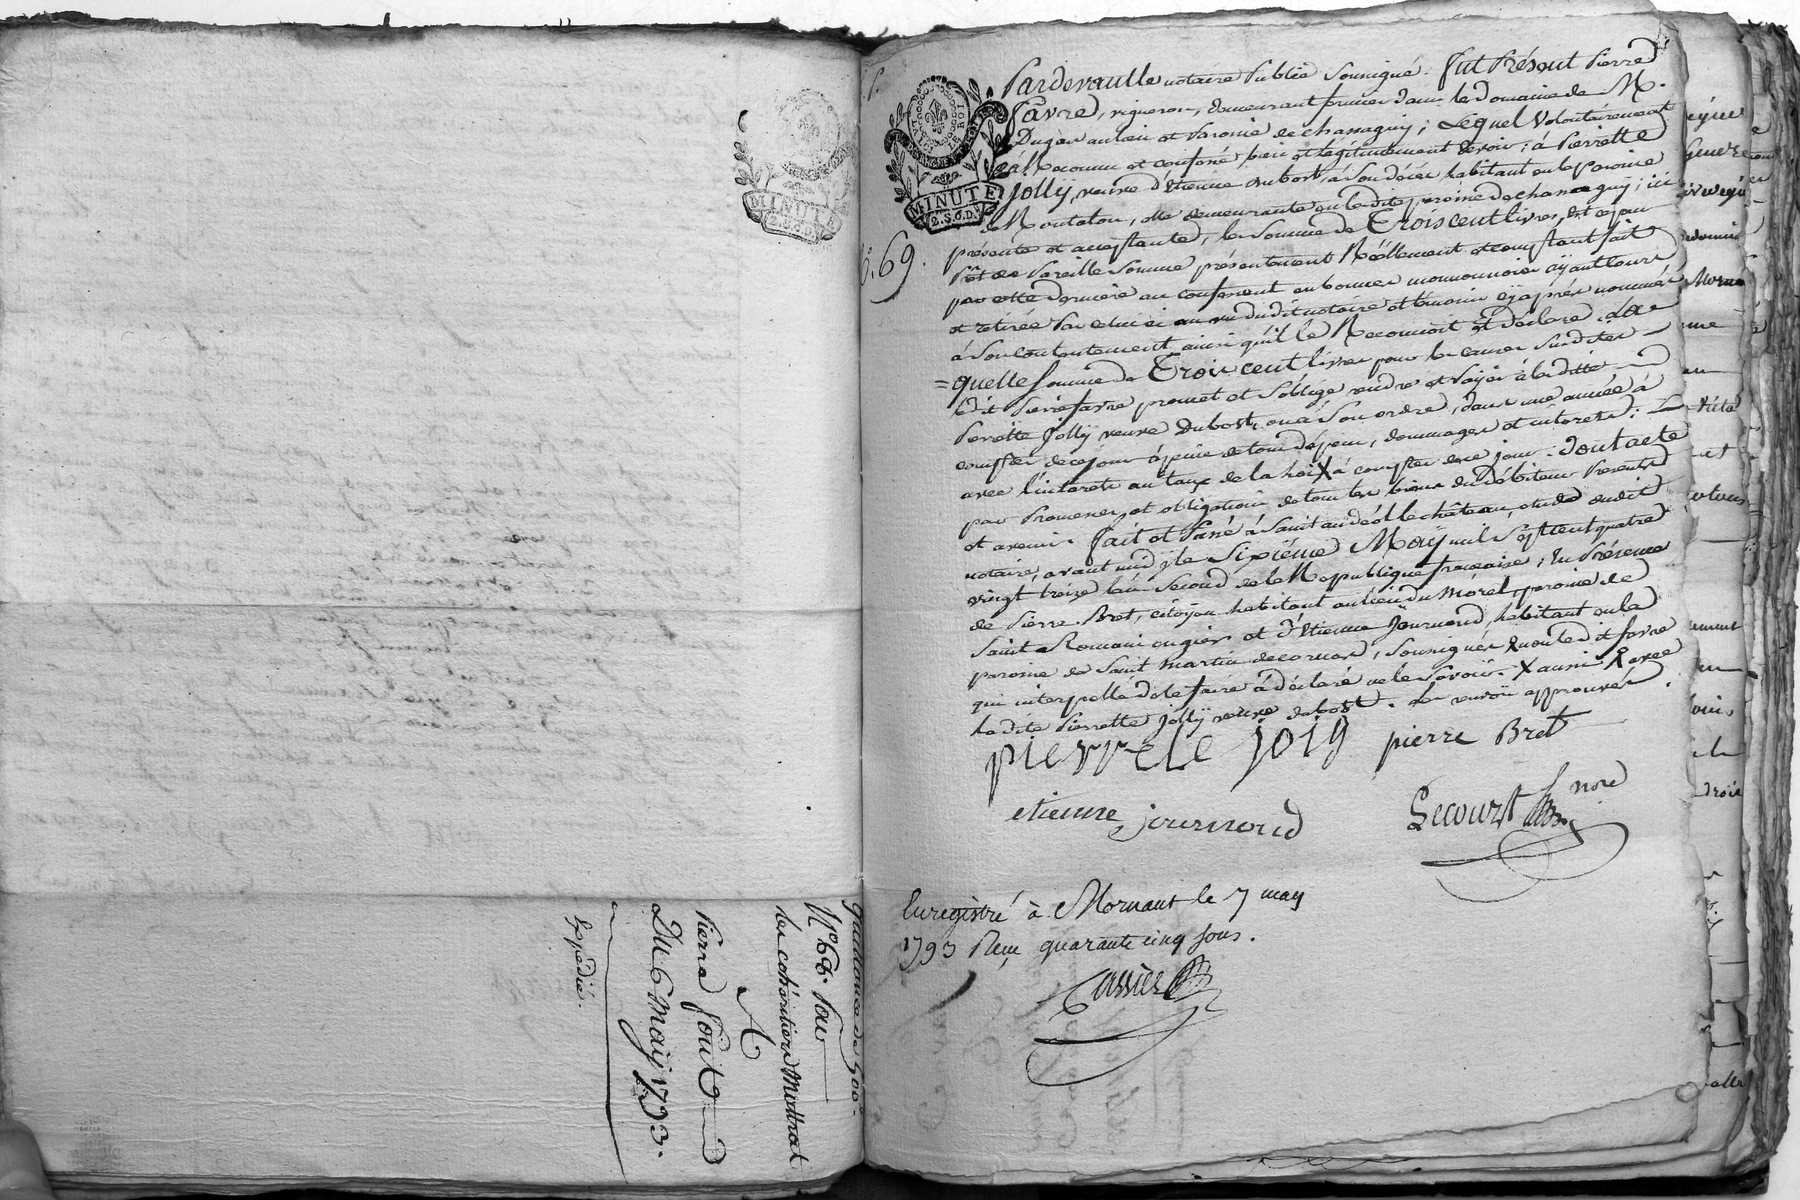 Quittance de 500
N.º 68. Pour
les cohéritiers Mathrat
A
Pierre Gout
Du 6 may 1793.
Expédié.
MINUTE
2.S.6.D.
LA LOI LE ROI
MINUTE
2.S.6.D.
69.
Pardevant le notaire Public soussigné. fut Présent Pierre
favre, vigneron, demeurant fermier dans le domaine de M.
Dugas au lieu et Paroisse de chassagny; Lequel volontairement
à Reconnu et confessé, bien et légitimement devoir; à Pierrette
Jolly, veuve d'Etienne Dubost, à son décès habitant en la Paroisse
de Rontalon, elle demeurante en la dite paroisse de chassagny; ici
présente et acceptante, la somme de Trois cent livres, Et ce pour
Prêt de Pareille somme présentement Réellement et comptant fait
par cette dernière au confessant en bonnes monnoies ayant cours
et retirée Par celui ci au vu dudit notaire et témoins cy après nommés
à son contentement ainsi qu'il le Reconnoit et déclare. La
=quelle somme de Trois cent livres pour les causes susdites
ledit Pierre favre promet et s'oblige rendre et Payer à la ditte
Perrette Jolly veuve Dubost, ou à son ordre, dans une année à
compter de ce jour à peine de tous dépens, dommages et intérets;
avec l'intérets au taux de la loi X à compter de ce jour. Dont acte
par Promesses, et obligations de tous les biens du débiteur Présents
et avenir. fait et Passé à Saint andéol le château, étude dudit
notaire, avant midy le sixiéme May mil sept cent quatre
vingt treize l'an second de la République française; En Présence
de Pierre Bret, citoyen habitant au lieu du Morel, paroisse de
Saint Romain en gier et d'Etienne Journoud, habitant en la
paroisse de Saint martin de cornas, soussignés & non ledit favre
qui interpellé de le faire à déclaré ne le savoir. X aussi & avec
la dite Pierrette Jolly veuve dubost. Le renvoi approuvés.
pierrele joly pierre Bret
etienne journoud
Lecourt nore
Enregistré à Mornant le 7 may
1793 Reçu quarante cinq sous.
Cassier